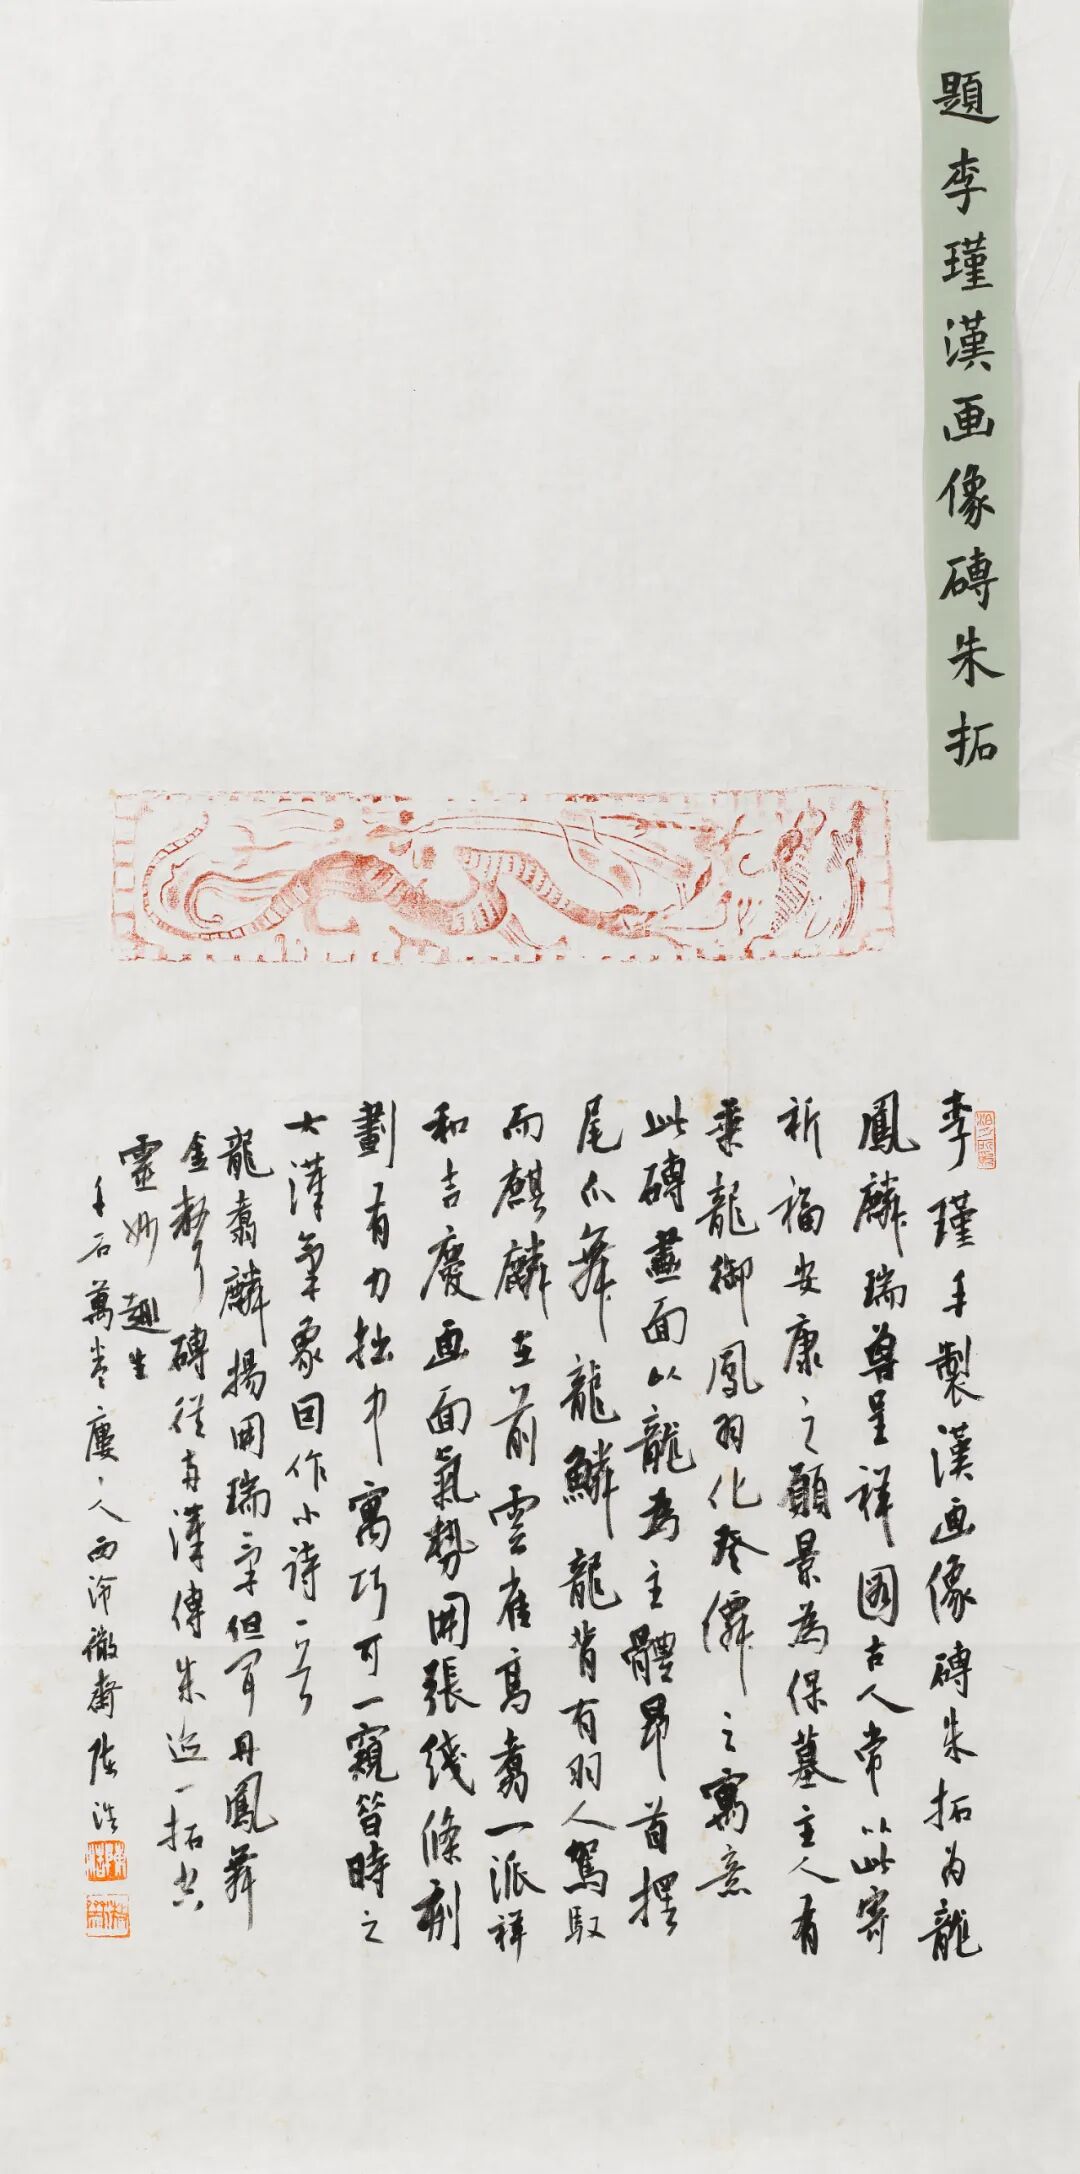 題李瑾漢画像磚朱拓
李瑾手製漢画像磚朱拓为龍
鳳麟瑞兽呈祥圖古人常以此寄
祈福安康之願景為保墓主人有
乘龍御鳳羽化登僊之寓意
此磚畫面以龍為主體昂首擺
尾爪舞龍鱗龍背有羽人駕馭
而麒麟在前雲雀高翥一派祥
和吉慶画面氣勢開張綫條刚
劃有力拙中寓巧可一窺昔時之
大漢氣象因作小诗一首
龍翥麟揚開瑞字但聞丹鳳舞
金磚從有漢傳朱迹一拓
靈妙趣生
千石萬卷廔人西泠徽齋陸浩